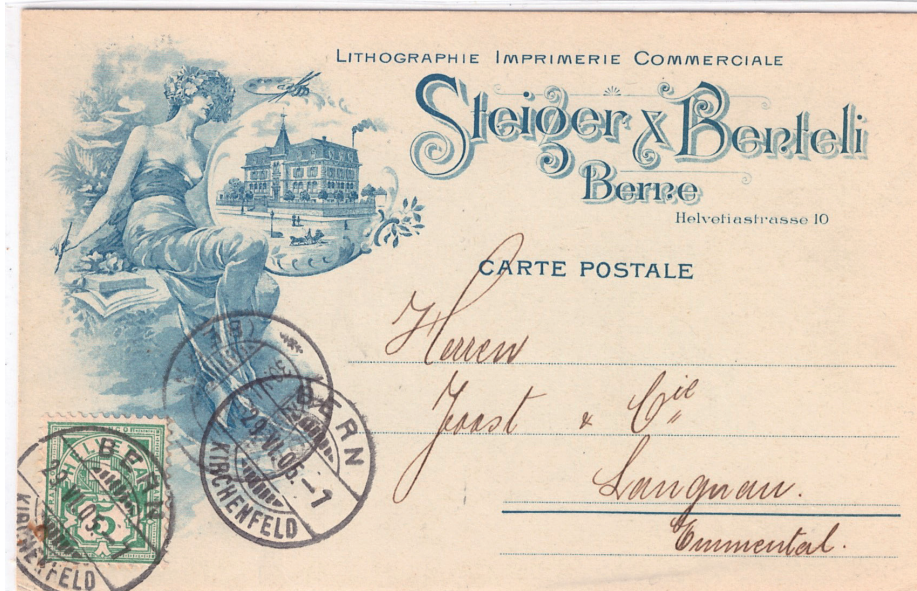 LITHOGRAPHIE IMPRIMERIE COMMERCIALE
Steiger & Benteli
Berne
Helvetiastrasse 10
CARTE POSTALE
Herren
Joost & Cie
Langnau.
Emmental.
BERN
29.VI.05.-7
KIRCHENFELD
HELVETIA
5
BERN
29.VI.05.-7
KIRCHENFELD